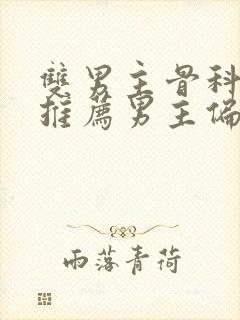 雙男主骨科
推薦男主偏
雨落青荷